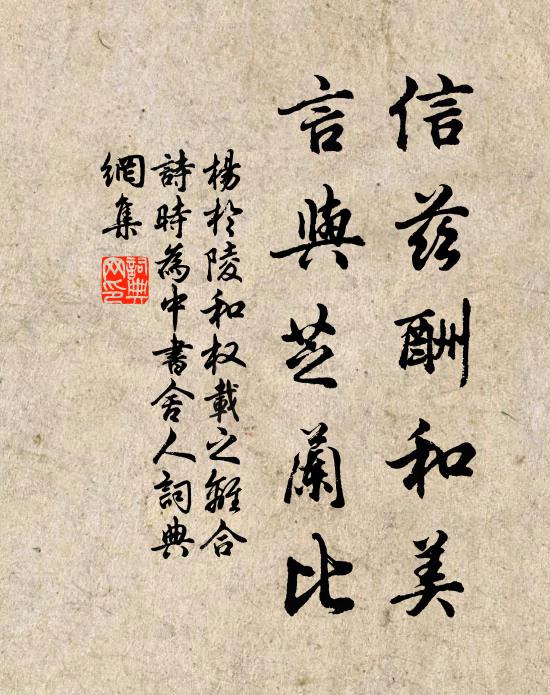 信茲酬和美
言與芝蘭比
楊於陵和权載之離合
詩時為中書舍人詞典
網集
詞典
网印